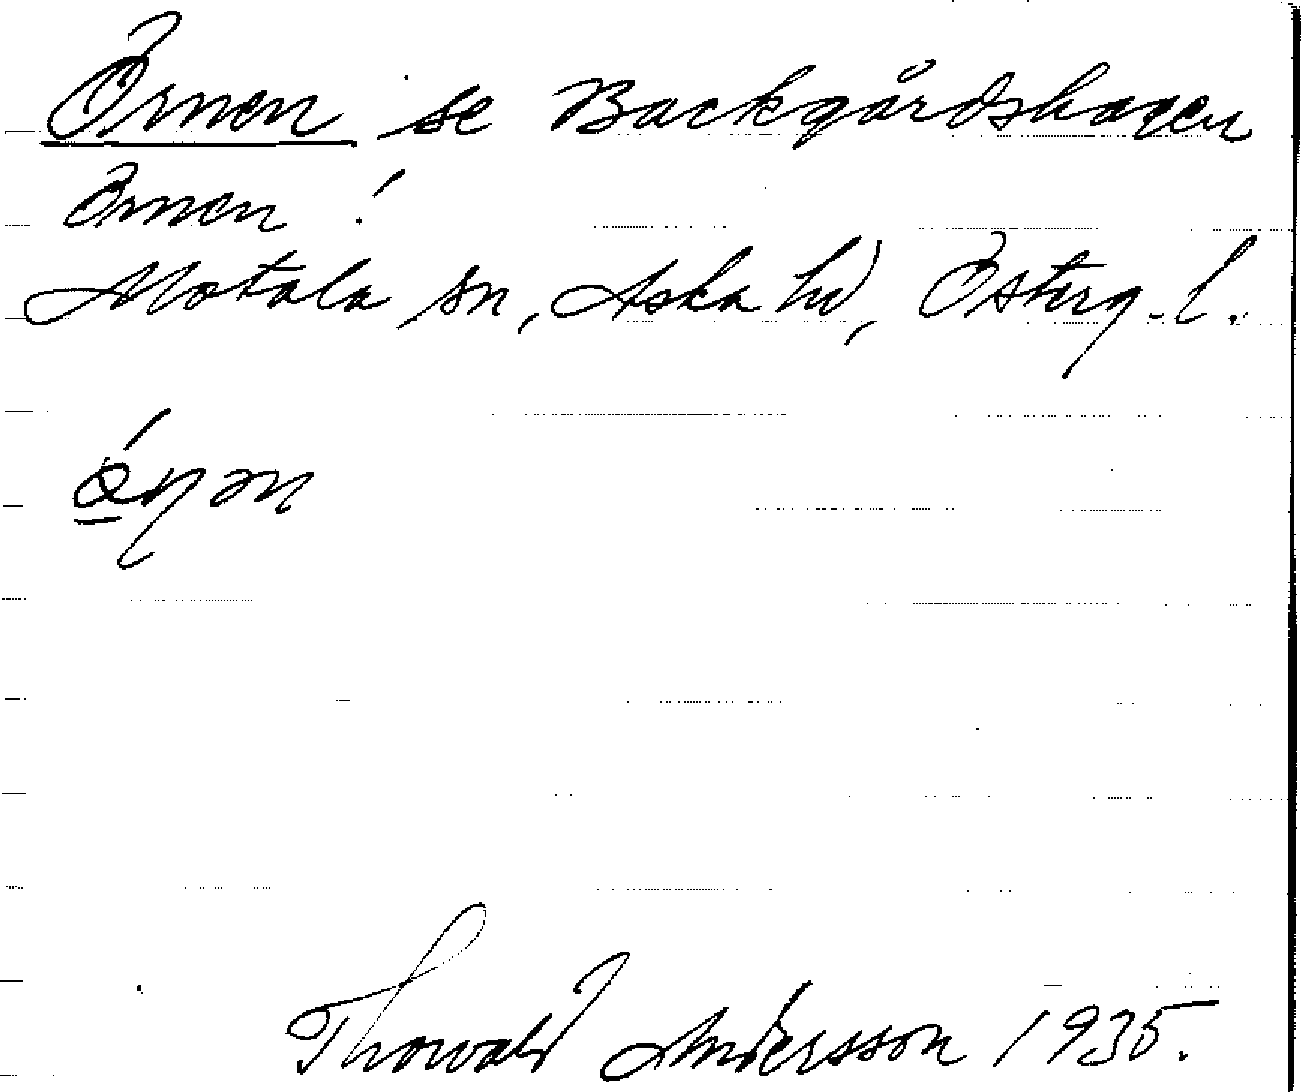 Örnen se Backgårdshagen
Örnen!
Motala sn, Aska hd, Österg. l.
Thorvald Andersson 1935.